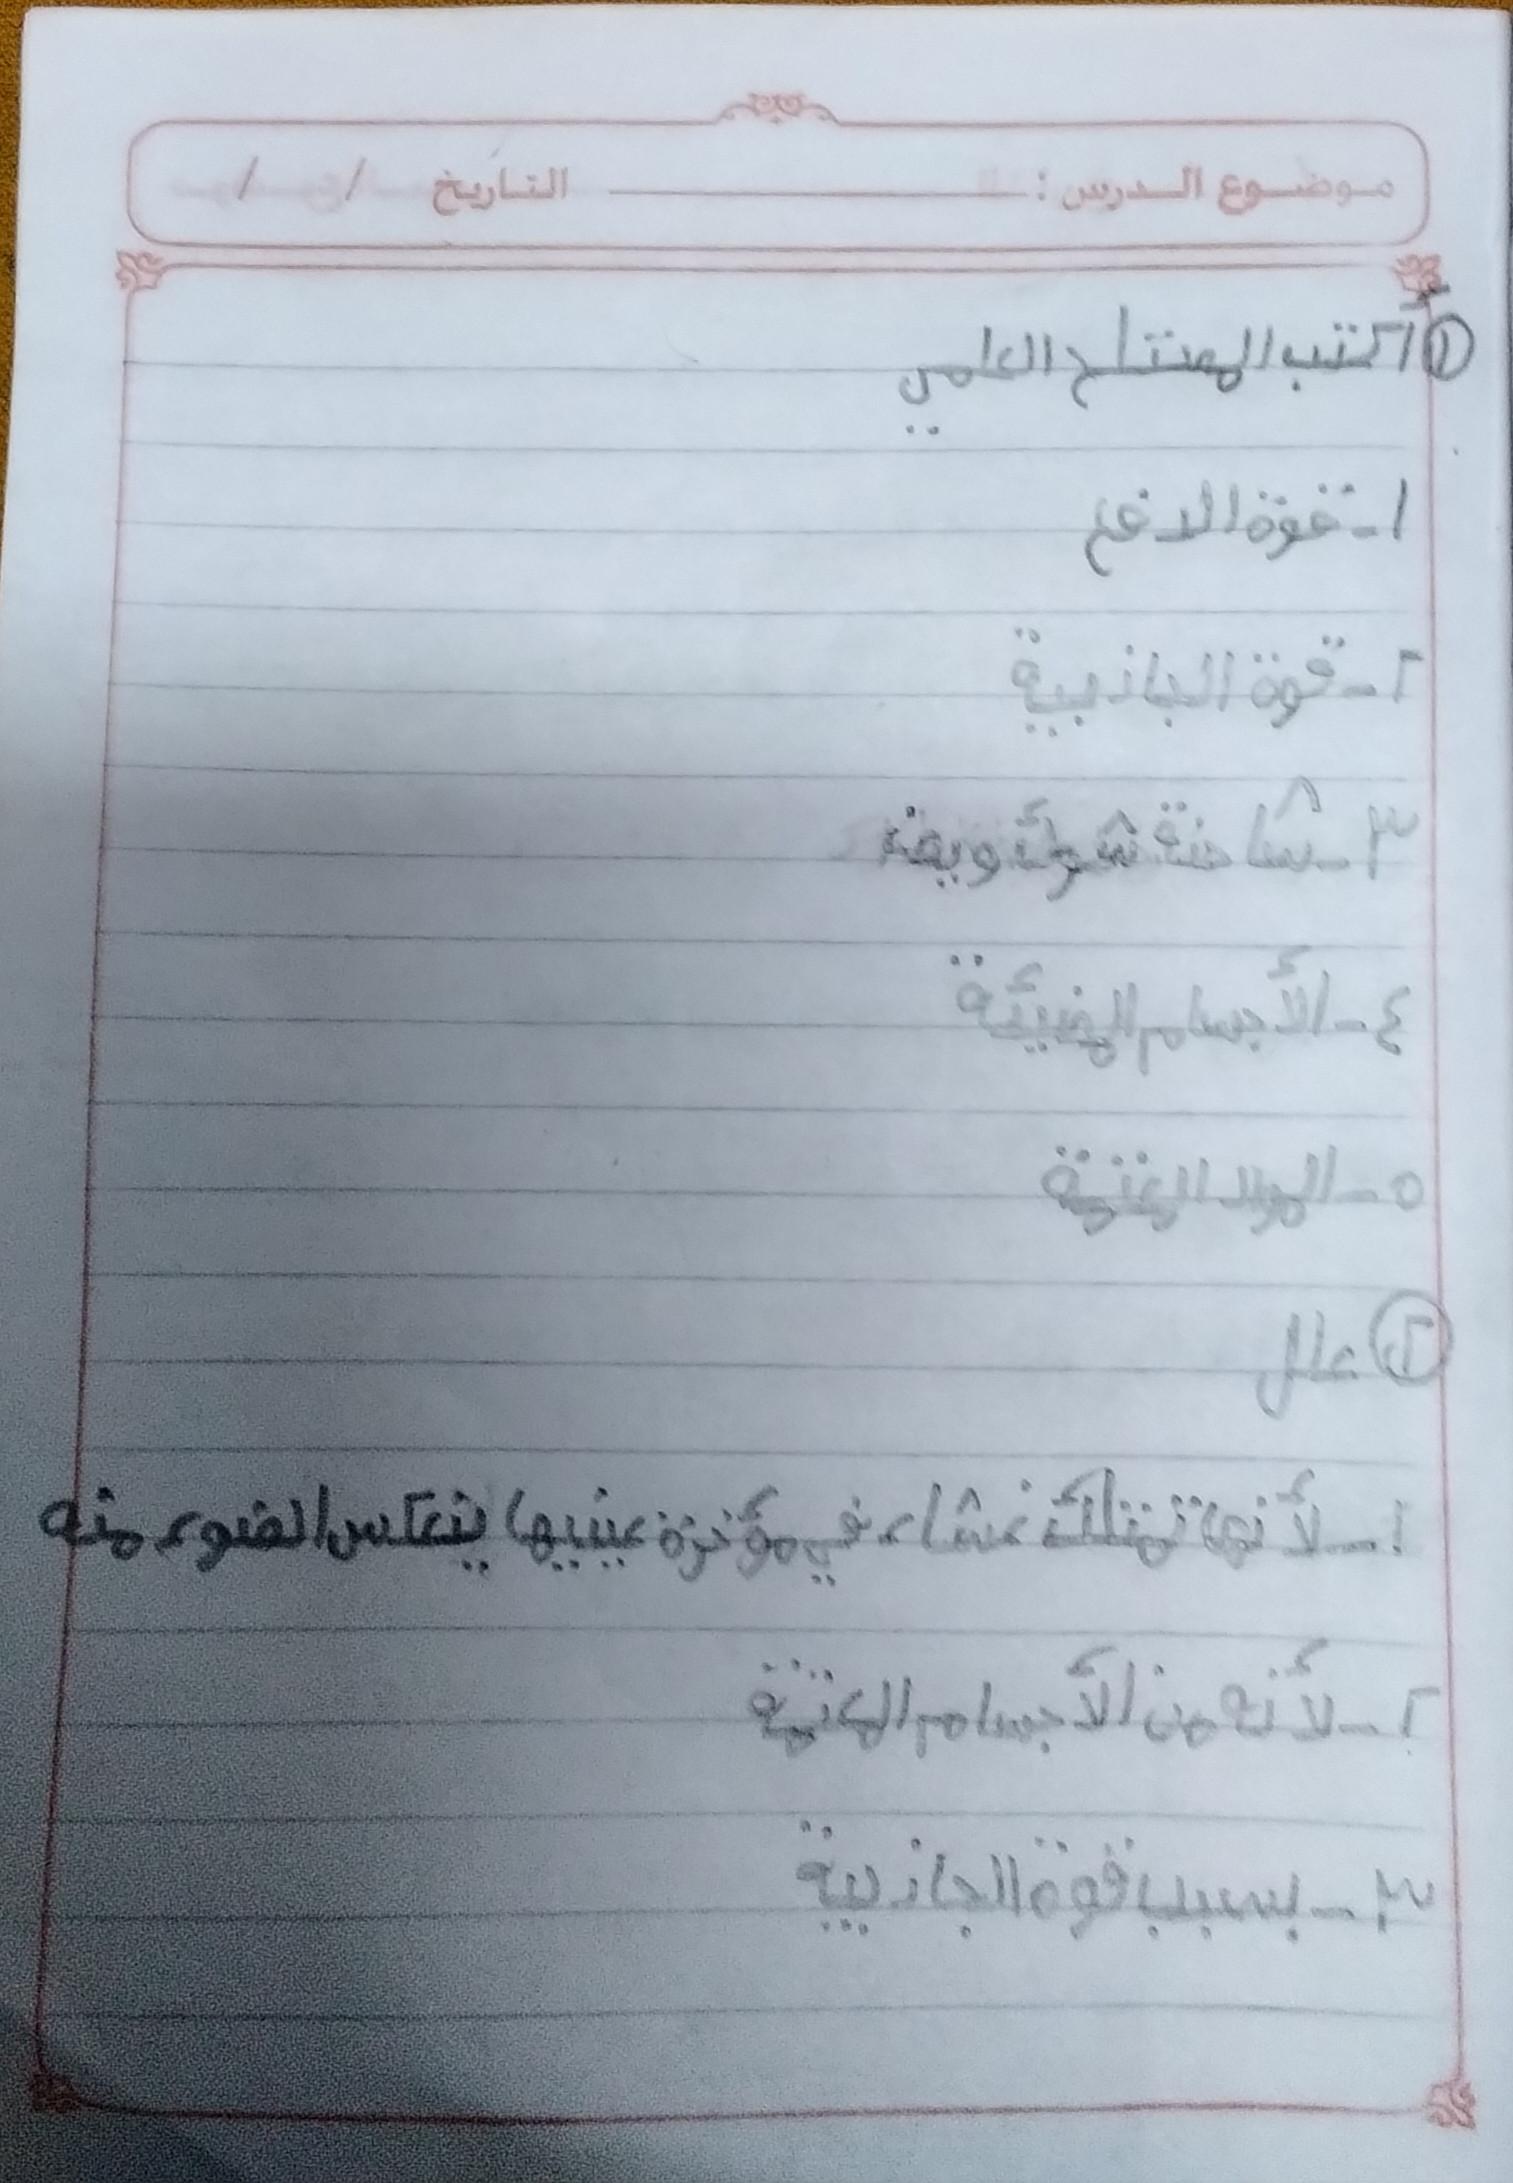 موضوع الدرس : التاريخ / /
① أكتب المصتلح العلمي
١- قوة الدفع
٢- قوة الجاذبية
٣- شاحنة
٤- الأجسام المضيئة
٥- المواد المعتمة
② علل
١- لأنها تمتلك غشاء في مؤخرة عينيها ينعكس الضوء منه
٢- لأنه من الأجسام المعتمة
٣- بسبب قوة الجاذبية